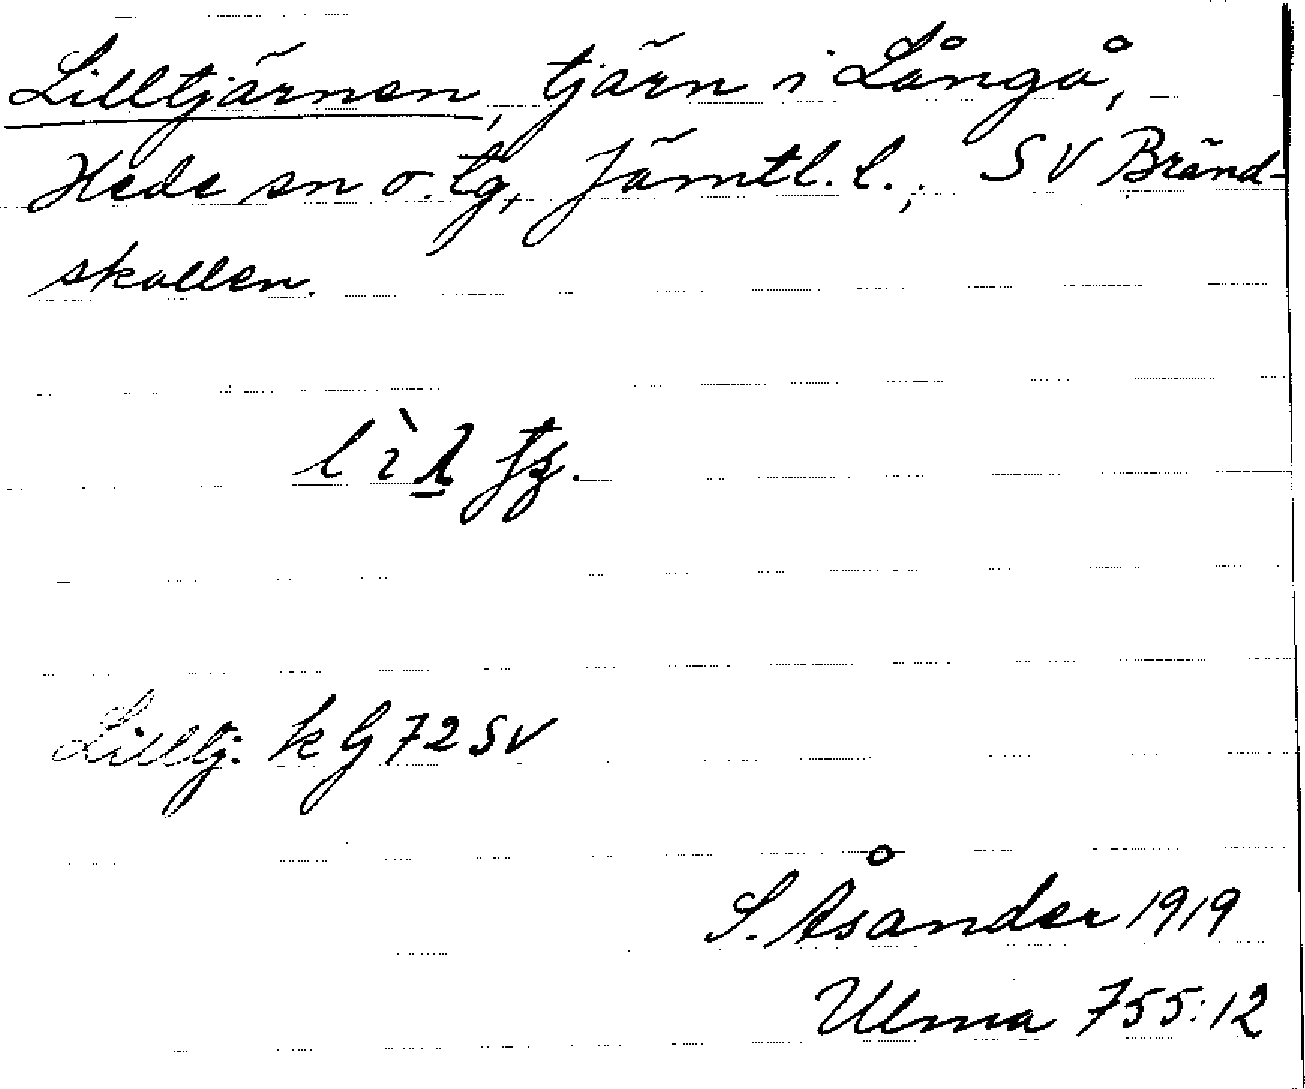 Lilltjärnen, tjärn i Långå,
Hede sn o. tg, Jämtl. l.; SV Bränd-
skallen.
Lilltj. kG 72 SV
S. Åsander 1919
Ulma 755:12